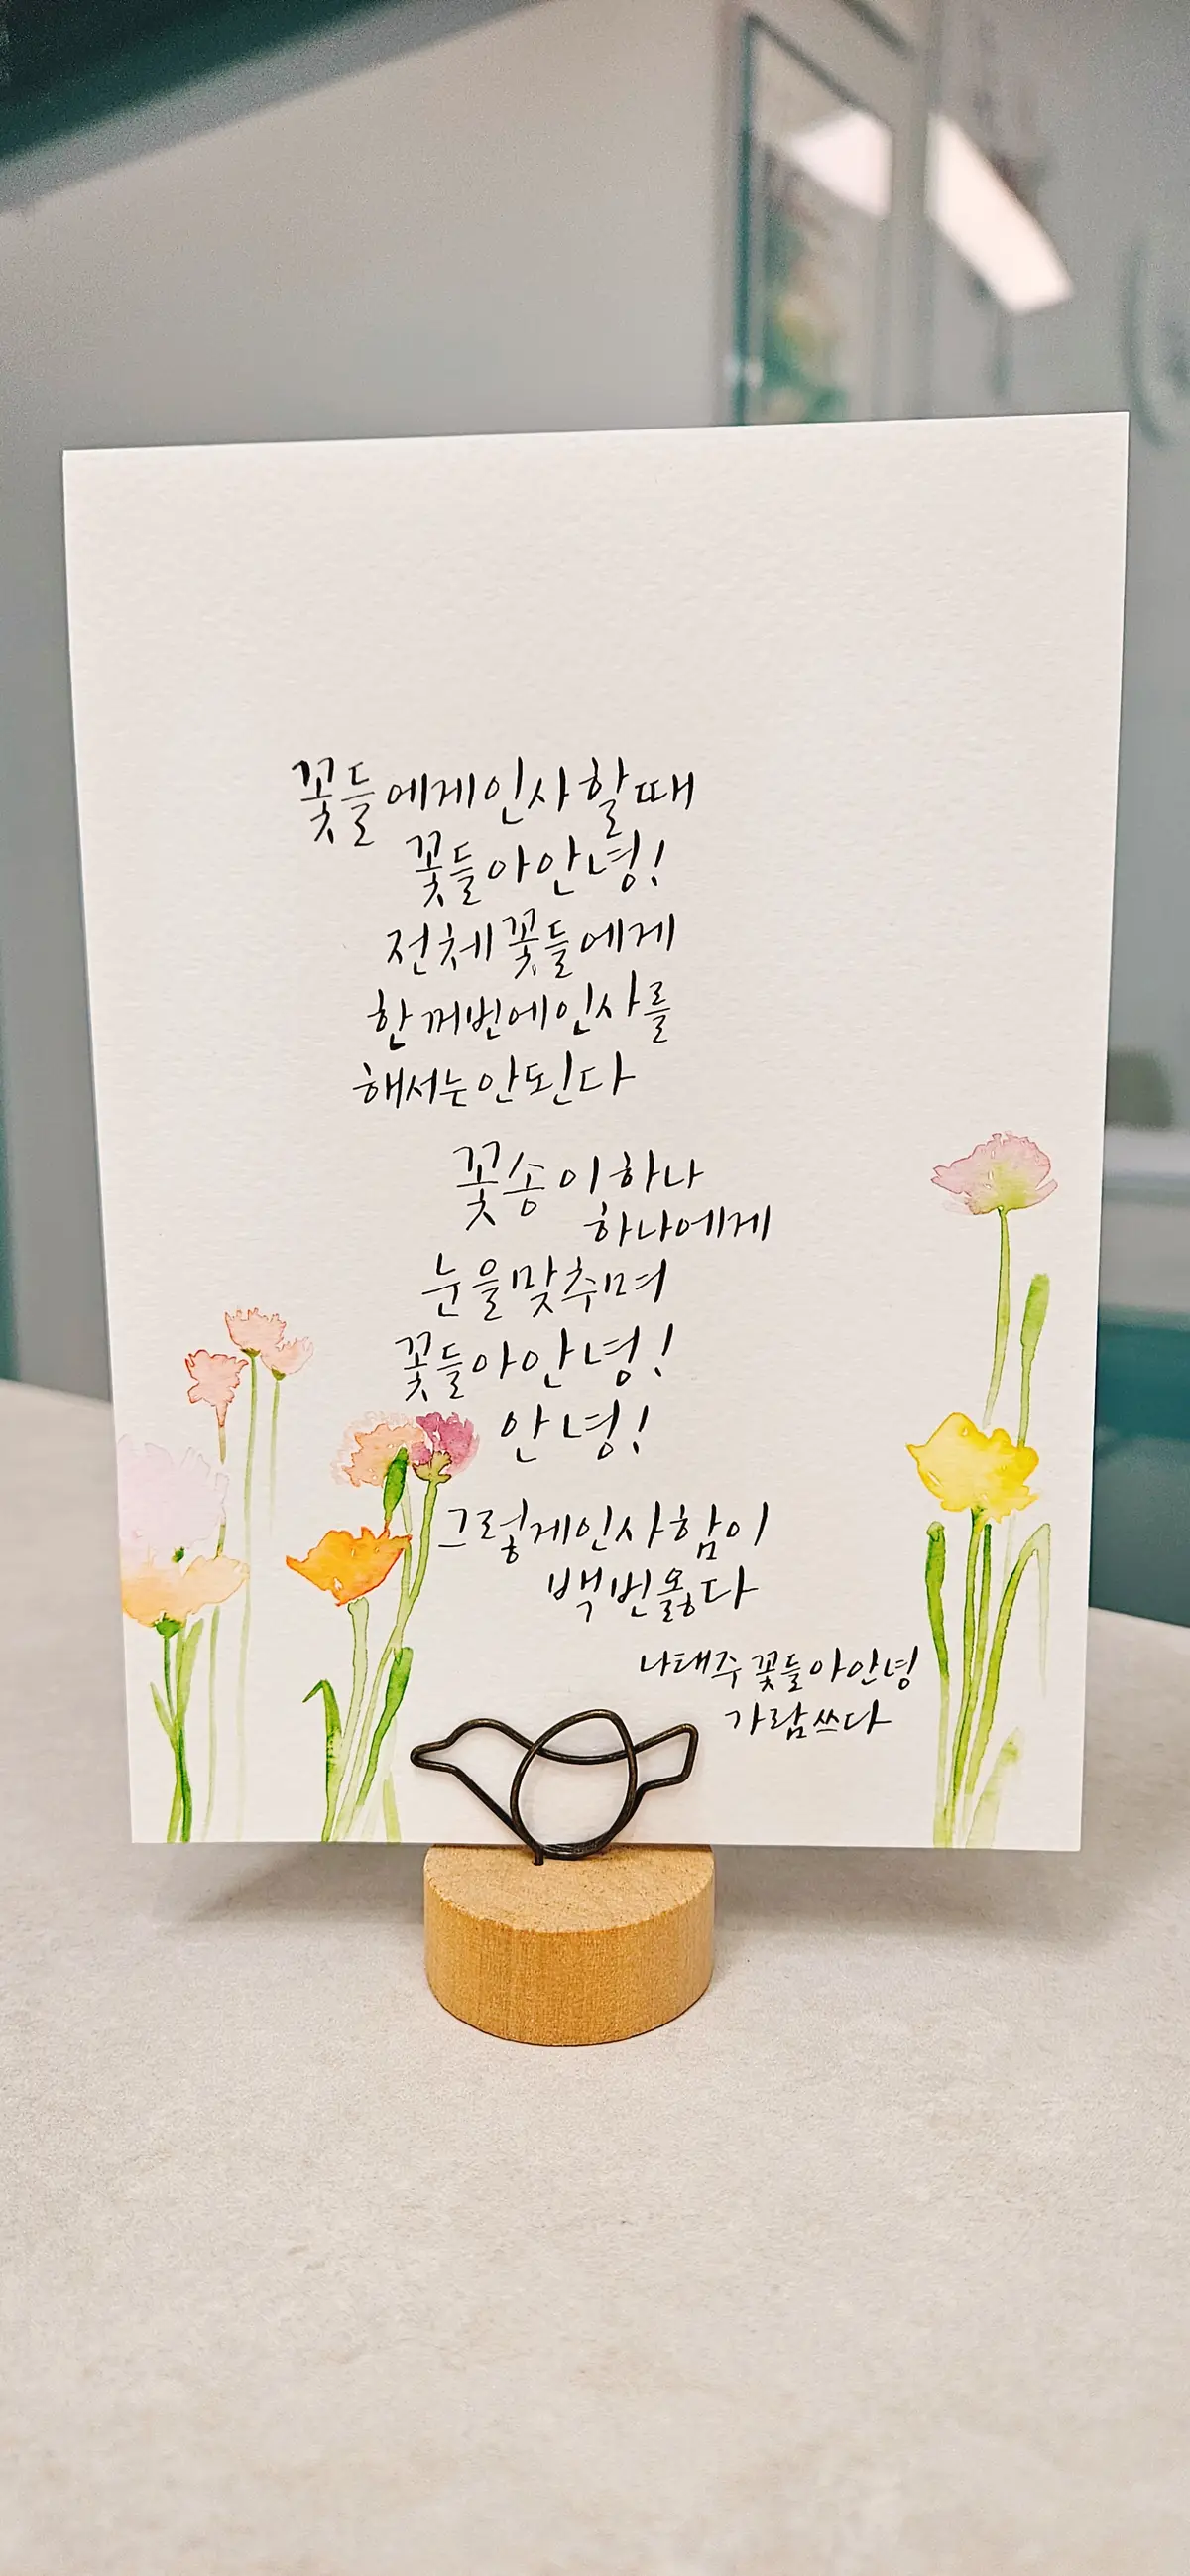 꽃들에게 인사할 때
꽃들아 안녕!
전체 꽃들에게
한꺼번에 인사를
해서는 안된다
꽃송이 하나
하나에게
눈을 맞추며
꽃들아 안녕!
안녕!
그렇게 인사함이
백번 옳다
나태주 꽃들아 안녕
가람쓰다